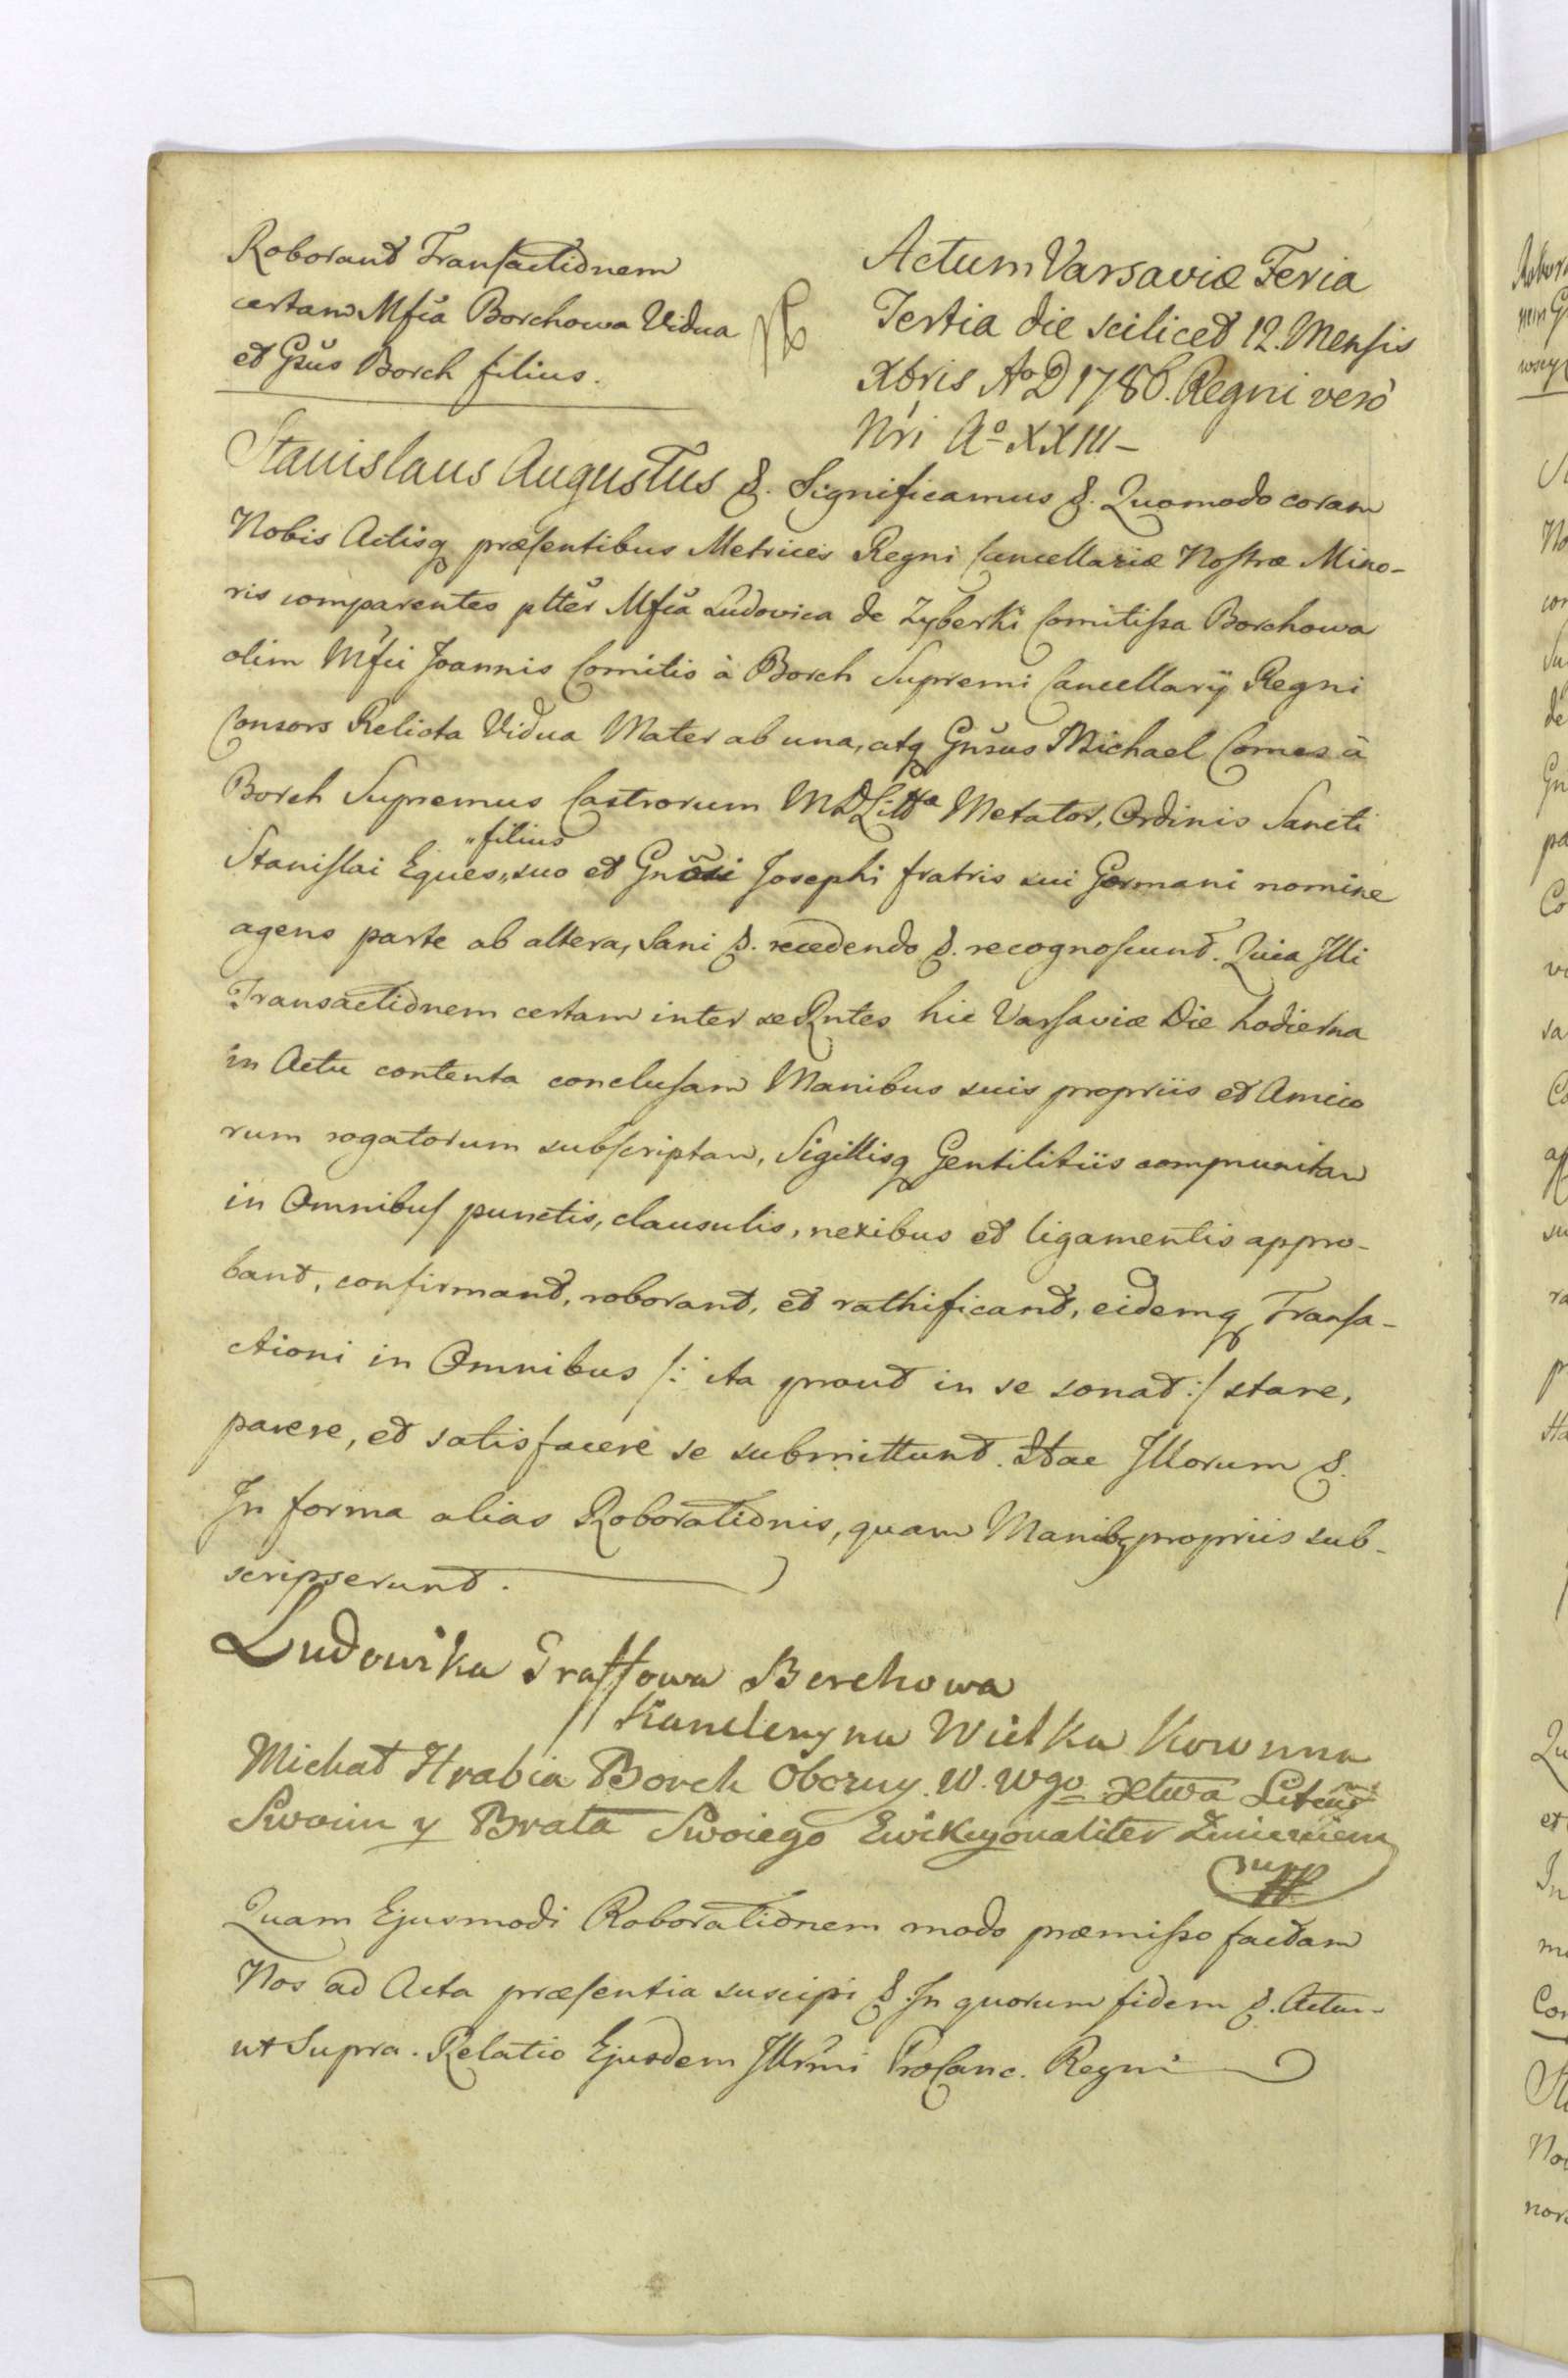 Roborant Transactionem
certam Mfca Borchowa Vidua
et Gsus Borch filius.
Actum Varsaviæ Feria
Tertia die scilicet 12. Mensis
Xbris Ao D 1786. Regni verò
Nri Ao XXIII-
Stanislaus Augustus &. Significamus &. Quomodo coram
Nobis Actisq præsentibus Metrices Regni Cancellariæ Nostræ Mino-
ris comparentes pltter Mfca Ludovica de Zyberki Comitissa Borchowa
olim Mfci Joannis Comitis à Borch Supremi Cancellarij Regni
Consors Relicta Vidua Mater ab una, atq Gnsus Michael Comes à
Borch Supremus Castrorum M D Littæ Metator, Ordinis Sancti
Stanislai Eques, "filius" suo et Gnosi Josephi fratris sui Germani nomine
agens parte ab altera, Sani &. recedendo &. recognoscunt. Quia Illi
Transactionem certam inter se Rntes hic Varsaviæ Die hodierna
in Actu contenta conclusam Manibus suis propriis et Amico
rum rogatorum subscriptam, Sigillisq Gentilitiis communitam
in Omnibus punctis, clausulis, nexibus et ligamentis appro-
bant, confirmant, roborant, et rathificant, eidemq Transa-
ctioni in Omnibus /: ita prout in se sonat :/ stare,
parere, et satisfacere se submittunt. Hac Illorum &.
In forma alias Roborationis, quam Manibq propriis sub-
scripserunt.
Ludowika Graffowa Borchowa
Kanclerzyna Wielka Koronna
Michał Hrabia Borch Obozny W. Wgo Xtwa Litew
Swoim y Brata Swoiego Ewikcyonaliter Imieniem
mpp
Quam Ejusmodi Roborationem modo præmisso factam
Nos ad Acta præsentia suscipi &. In quorum fidem &. Actum
ut Supra. Relatio Ejusdem Illrmi ProCanc. Regni